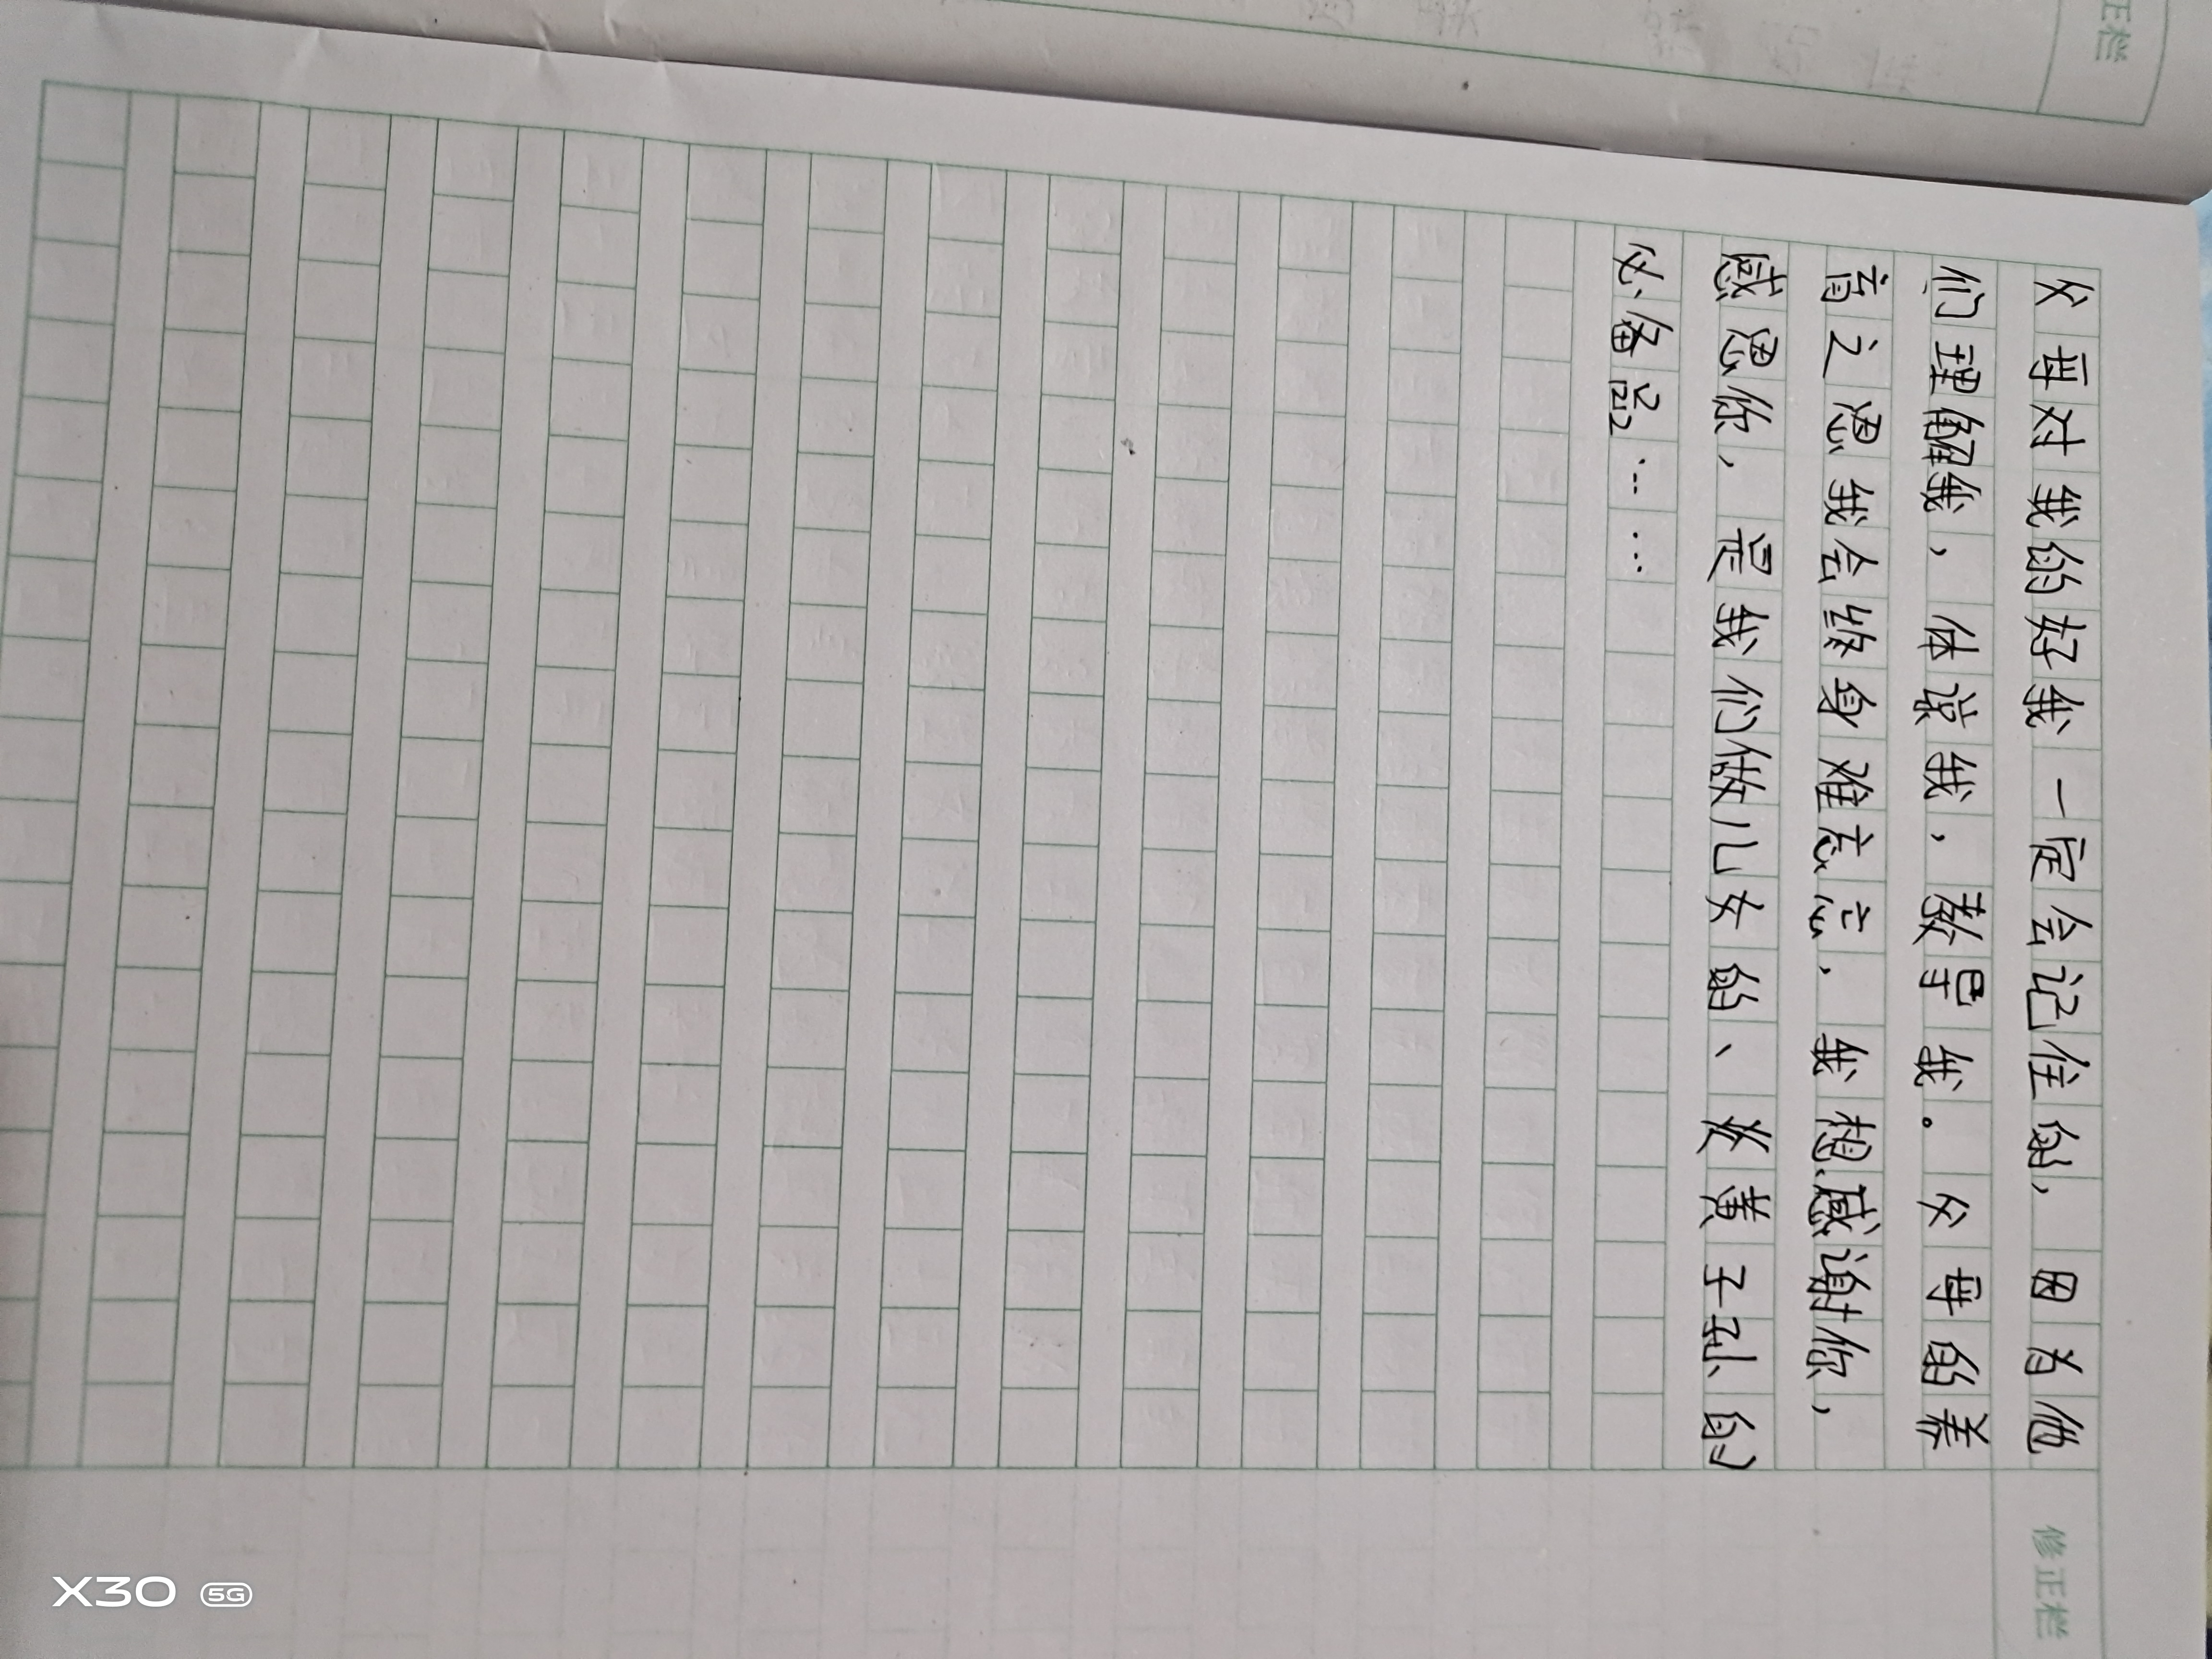 正栏
父母对我的好我一定会记住的，因为他
们理解我，体谅我，教导我。父母的养
育之恩我会终身难忘忘，我想感谢你，
感恩你，是我们做儿女的、炎黄子孙的
必备品……
修正栏
X30 5G